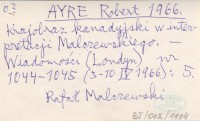 0.3 AYRE Robert 1966.
Krajobraz kanadyjski w inter-
pretacji Malczewskiego. —
Wiadomości (Londyn) nr
1044-1045 (3-10 IV 1966): 5.
Rafał Malczewski